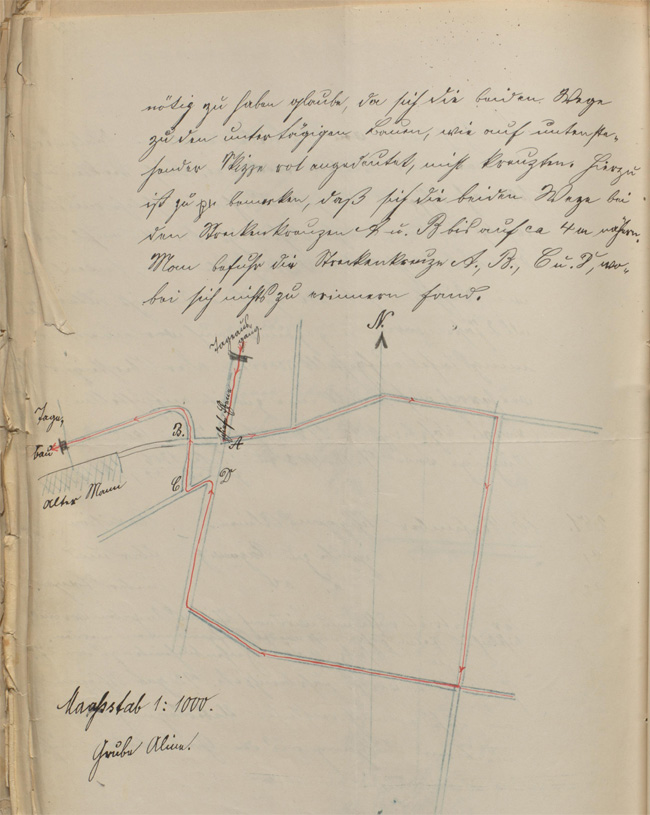 nötig zu haben glaube, da sich die beiden Wege
zu den untertägigen Bauen, wie auf untenste-
hender Skizze rot angedeutet, nicht kreuzten. Hierzu
ist zu bemerken, daß sich die beiden Wege bei
den Streckenkreuzen A u. B bis auf ca 4 m nähern.
Man befuhr die Streckenkreuze A., B., C u. D, wo-
bei sich nichts zu erinnern fand.
N.
Tagesaus
gang.
Tage-
bau
B.
A
C
D
Alter Mann
Maaßstab 1:1000.
Grube Aline.